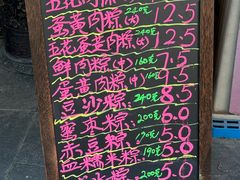 五花肉粽
蛋黄肉粽(大) 240克 12.5
五花蛋黄肉粽(大) 240克 12.5
鲜肉粽(中) 160克 7.5
蛋黄肉粽(中) 160克
豆沙粽 240克 8.5
蜜枣粽 200克 6.0
赤豆粽 5.0
血糯米粽 190克 5.0
200克 5.0